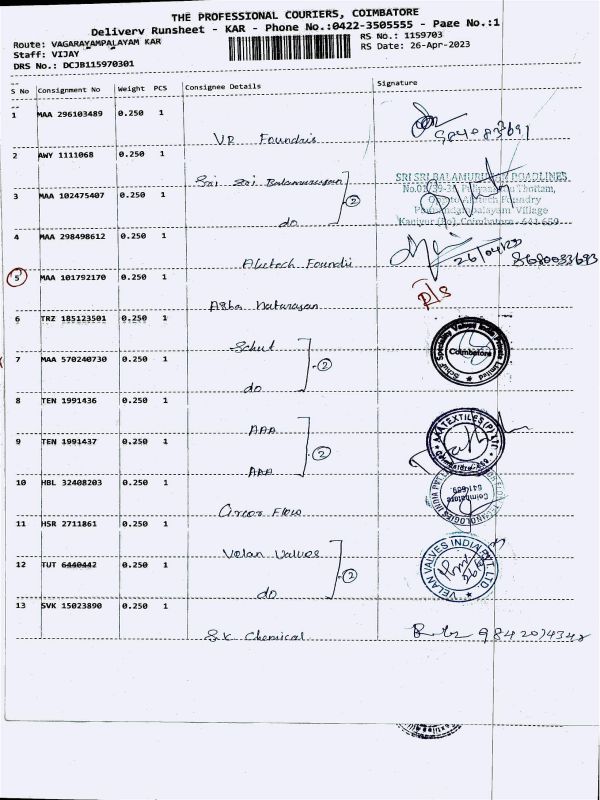 THE PROFESSIONAL COURIERS, COIMBATORE
Delivery Runsheet - KAR - Phone No.:0422-3505555 - Page No.:1
Route: VAGARAYAMPALAYAM KAR
RS No.: 1159703
Staff: VIJAY
RS Date: 26-Apr-2023
DRS No.: DCJB115970301
S No Consignment No Weight PCS Consignee Details Signature
1 MAA 296103489 0.250 1
VR Foundris
2 AWY 1111068 0.250 1
Sri Sri Balamurugan
SRI SRI BALAMURUGAN ROADLINES
3 MAA 102475407 0.250 1
do 2
Foundry
Village
4 MAA 298498612 0.250 1
Foundis
26/04/23
8680033693
5 MAA 101792170 0.250 1
Asha Natarayan
R/S
6 TRZ 185123501 0.250 1
Schuf
7 MAA 570240730 0.250 1
do 2
Schuf Speciality Valves India Private Limited
Coimbatore
8 TEN 1991436 0.250 1
9 TEN 1991437 0.250 1
2
Coimbatore
10 HBL 32408203 0.250 1
Circor Flow
Coimbatore
11 HSR 2711861 0.250 1
Velan Valves
12 TUT 6440442 0.250 1
do 2
VELAN VALVES INDIA PVT. LTD.
13 SVK 15023890 0.250 1
S.K Chemical